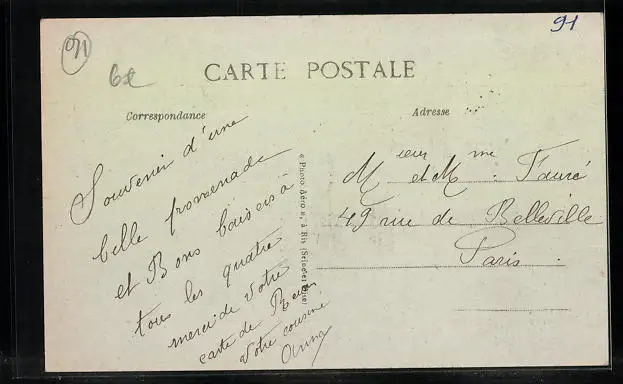 91
6€
91
CARTE POSTALE
Correspondance
Adresse
Souvenir d'une
belle promenade
et Bons baisers à
tous les quatre
merci de votre
carte de
votre cousine
Anna
« Photo Aéro », à Ris (Seine-et-Oise)
Mieur et Mme : Fauré
49 rue de Belleville
Paris.